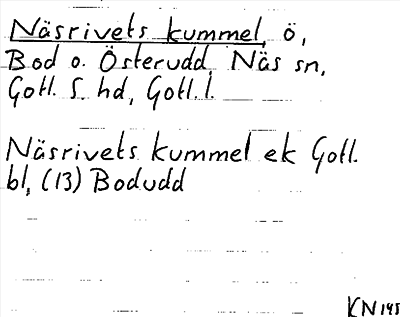 Näsrivets kummel, ö,
Bod o. Österudd, Näs sn,
Gotl. S. hd, Gotl. l.
Näsrivets kummel ek Gotl.
bl, (13) Bodudd